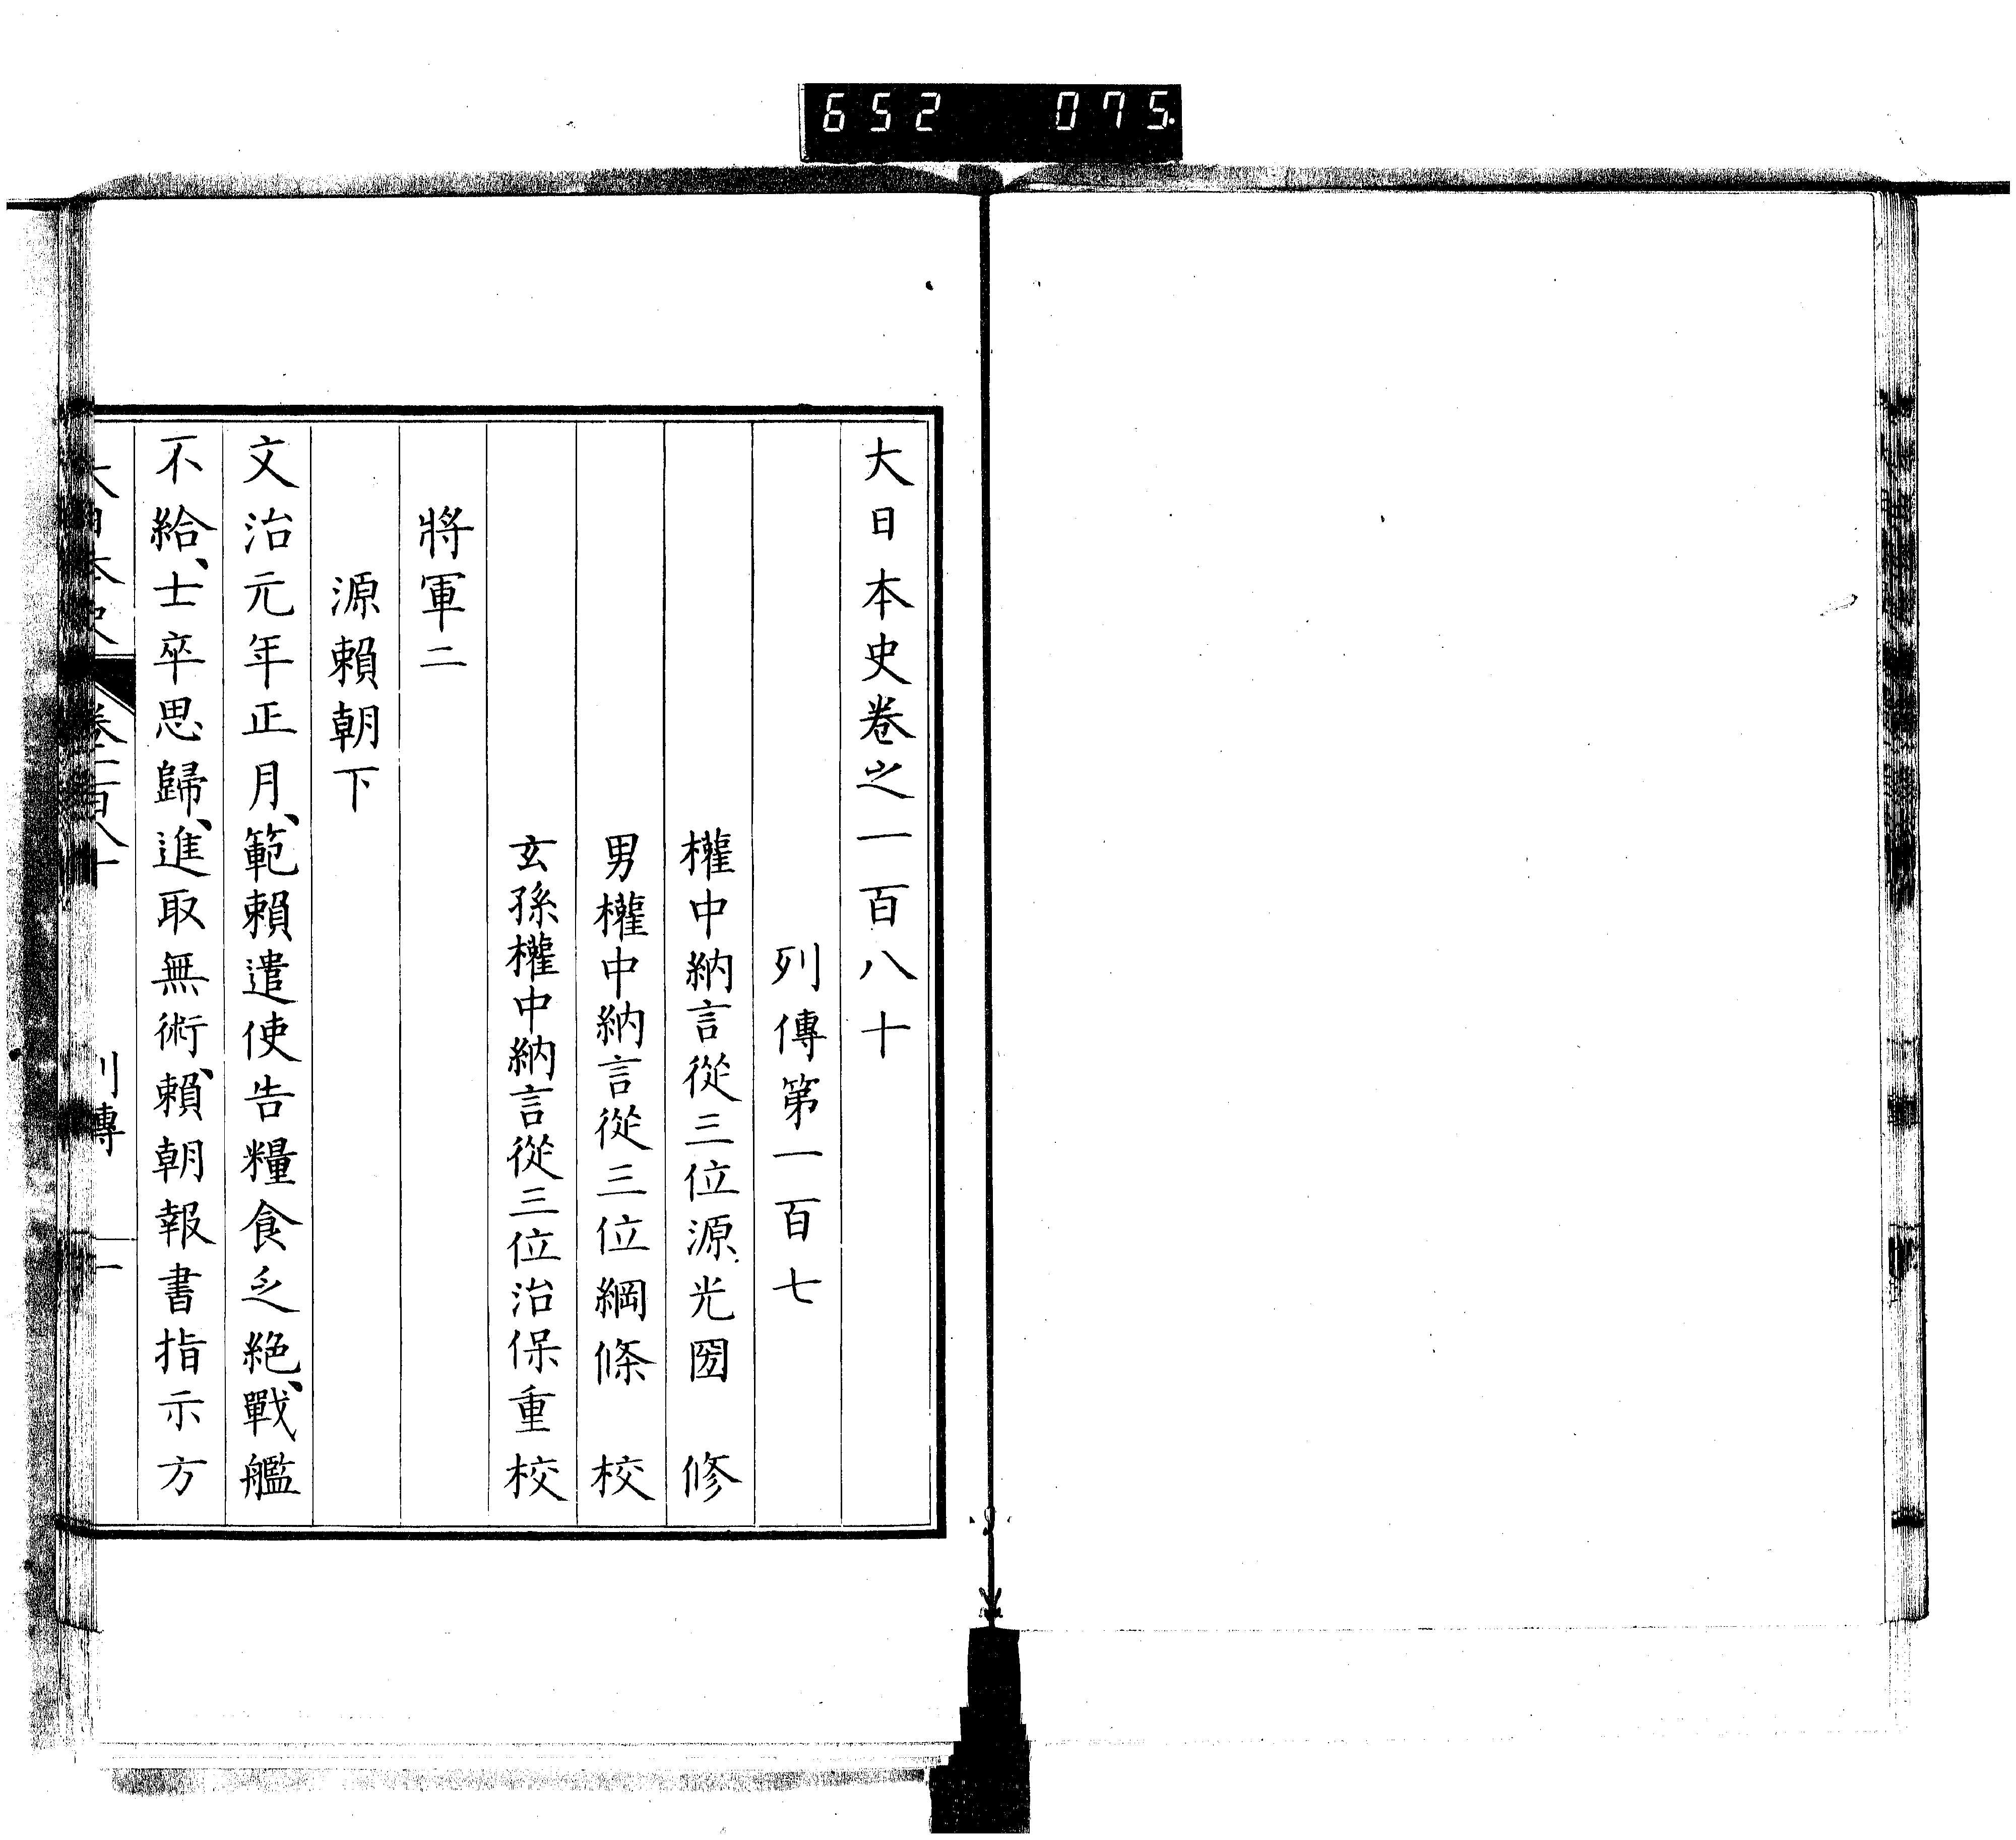 652 075
大日本史卷之一百八十
列傳第一百七
權中納言從三位源光圀 修
男權中納言從三位綱條 校
玄孫權中納言從三位治保重校
將軍二
源賴朝下
文治元年正月、範賴遣使告糧食乏絶、戰艦
不給、士卒思歸、進取無術、賴朝報書指示方
大日本史 卷一百八十 列傳 一